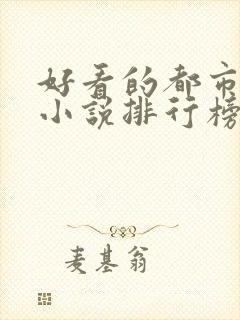 好看的都市
小说排行榜
麦基翁